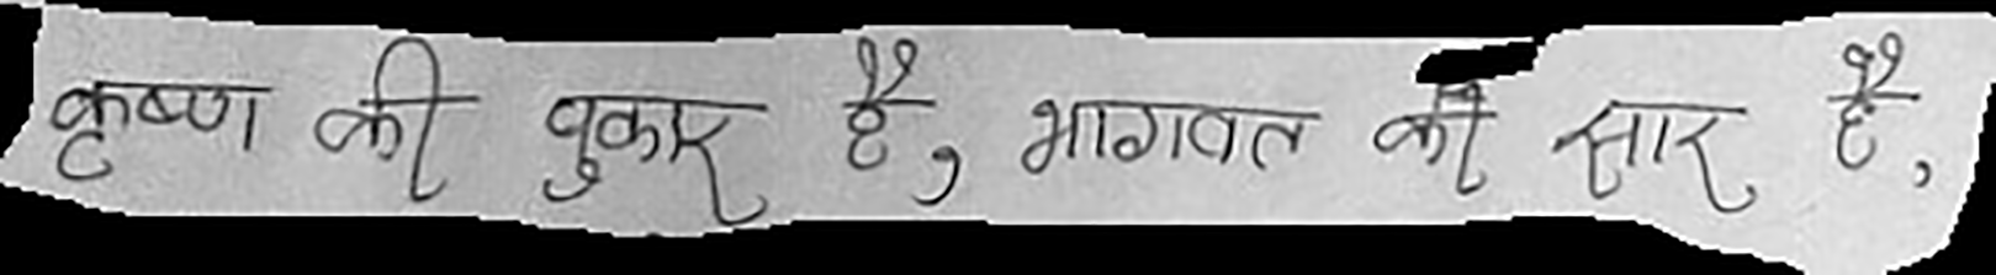 कृष्ण की पुकार है, भागवत की सार है,